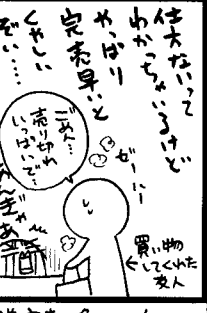 仕方ないって
わかっちゃいるけど
やっぱり
完売早いと
くやしい
ぞい……
ごめん…
売り切れ
いっぱいで…
ぜーはー
買い物
してくれた
友人